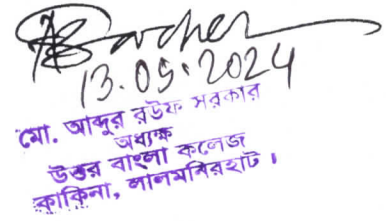 ARSarker
13.05.2024
মো. আব্দুর রউফ সরকার
অধ্যক্ষ
উত্তর বাংলা কলেজ
কাকিনা, লালমনিরহাট।